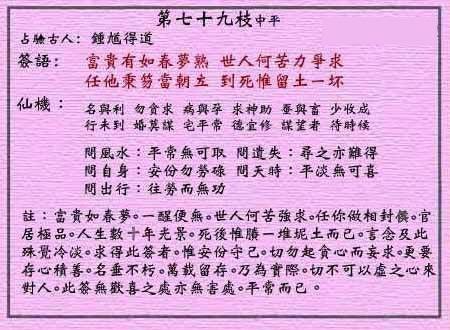 第七十九枝中平
占驗古人：鍾馗得道
簽語：富貴有如春夢熟 世人何苦力爭求
任他秉笏當朝左 到死惟留土一坏
仙機：名與利 勿貪求 病與孕 求神助 蚕與畜 少收成
行未到 婚莫謀 宅平常 德宜修 謀望者 待時候
問風水：平常無可取 問遺失：尋之亦難得
問自身：安份勿勞碌 問天時：平淡無可喜
問出行：往勞而無功
註：富貴如春夢。一醒便無。世人何苦強求。任你做相封侯。官
居極品。人生數十年光景。死後惟賸一堆坭土而已。言念及此
殊覺冷淡。求得此簽者。惟安份守己。切勿起貪心而妄求。更要
存心積善。名垂不朽。萬載留存。乃為實際。切不可以虛之心來
對人。此簽無歡喜之處亦無害處。平常而已。